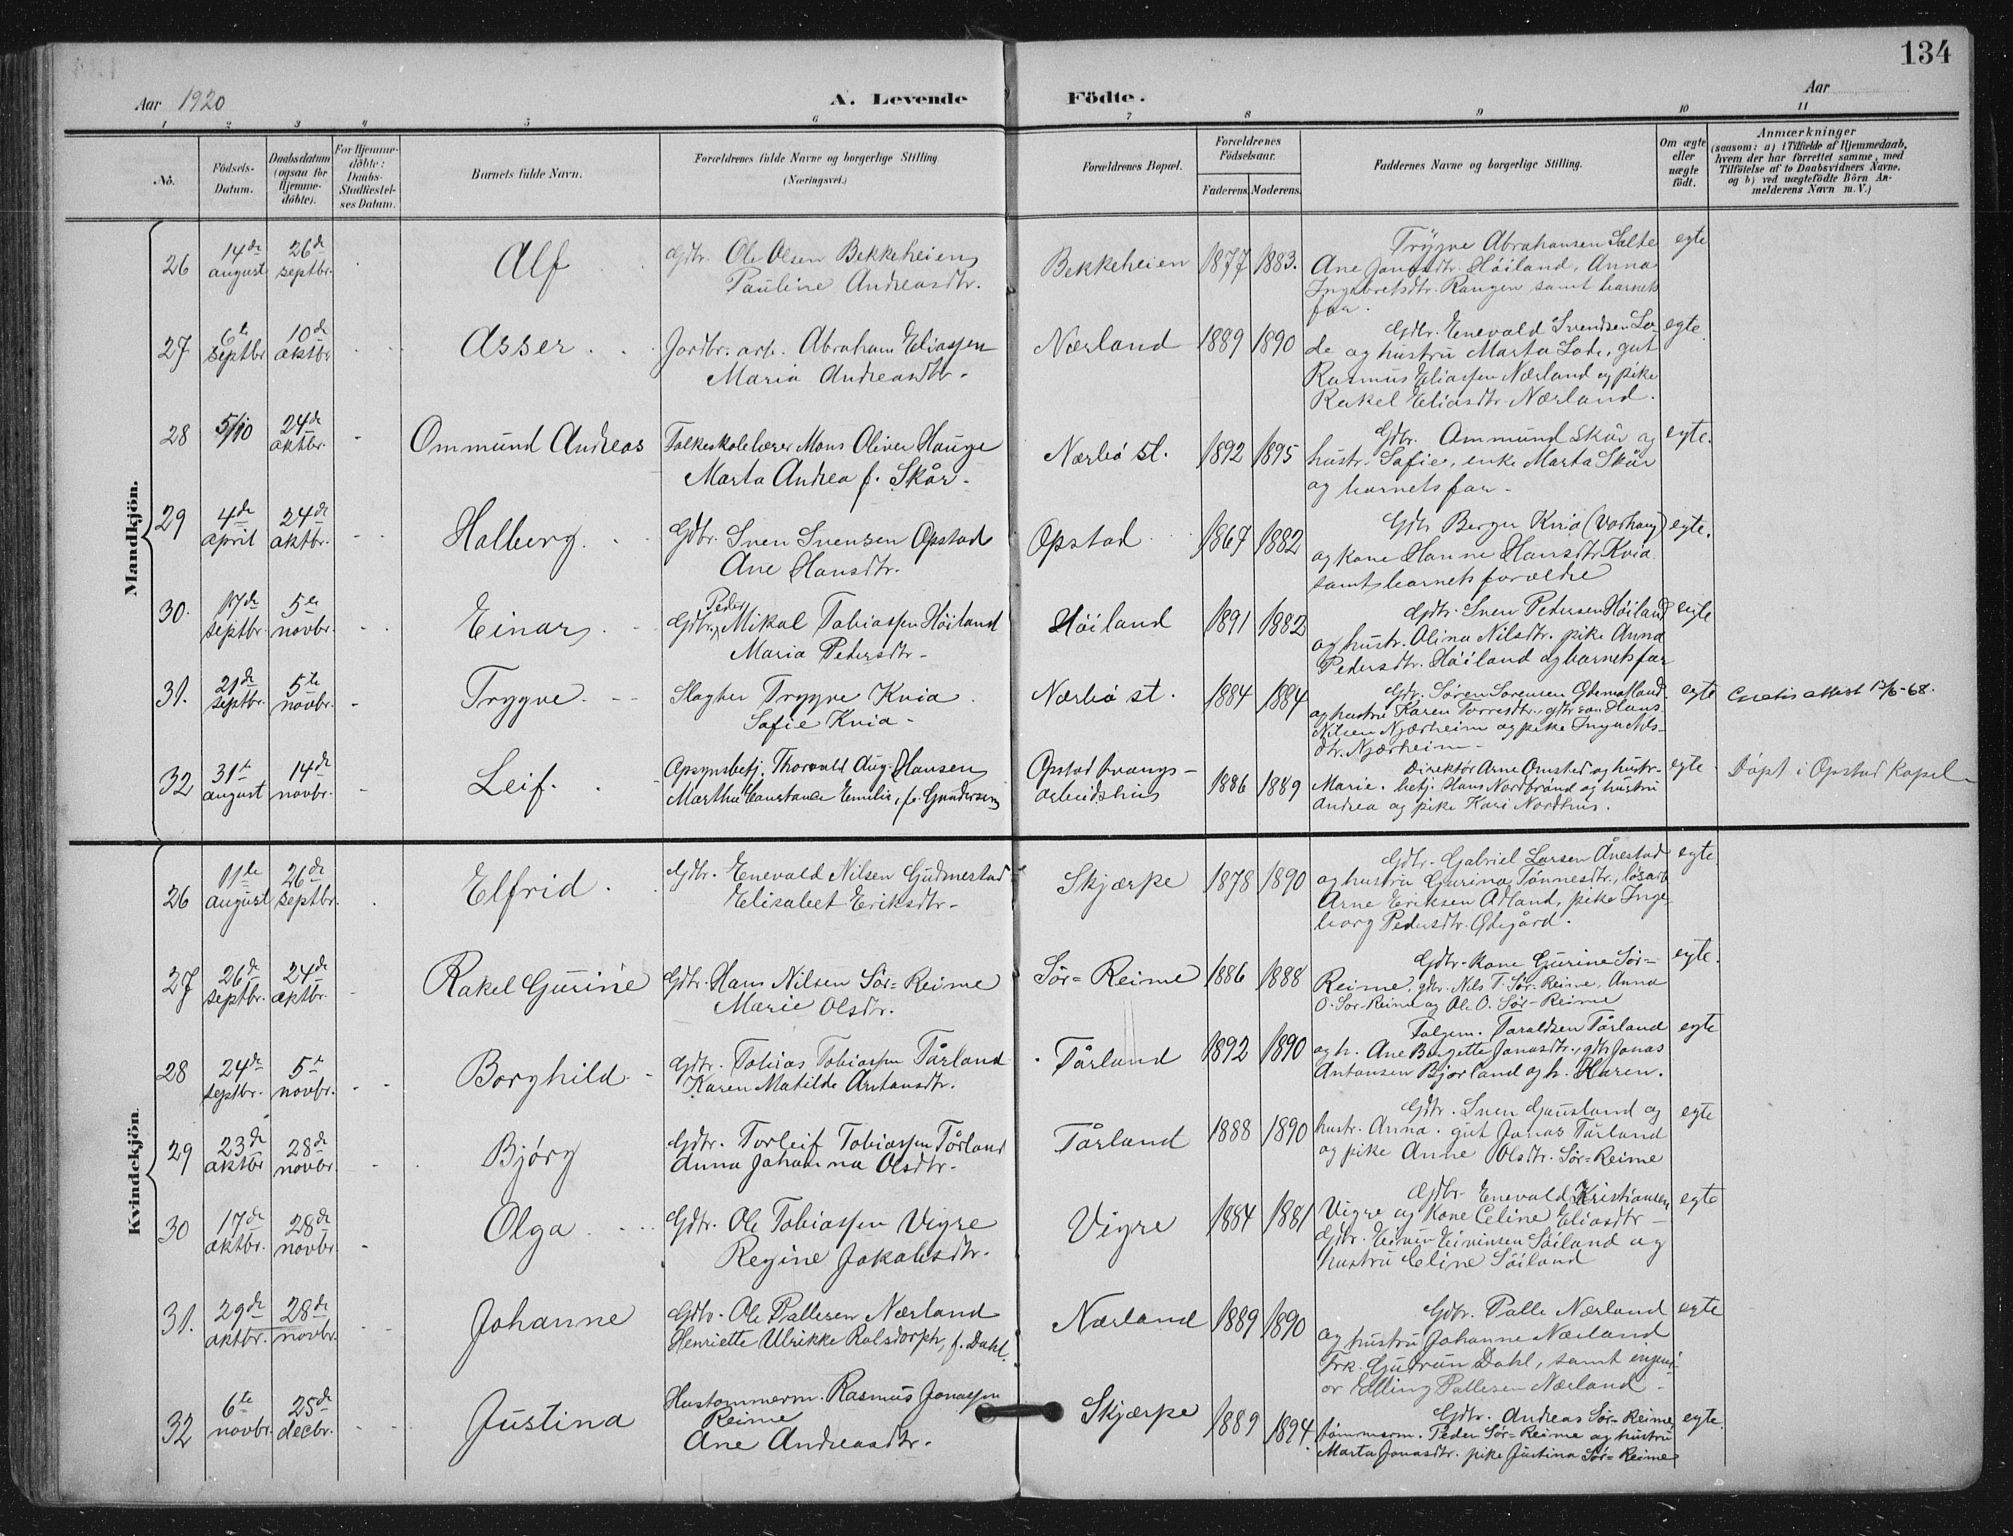 134
Aar 1920
A. Levende Födte.
Aar
1 2 3 4 5 6 7 8 9 10 11
No.
Födsels-Datum.
Daabsdatum (ogsaa for Hjemme-döbte).
For Hjemme-döbte: Daabs-Stadfæstel-ses Datum.
Barnets fulde Navn.
Forældrenes fulde Navne og borgerlige Stilling. (Næringsvei.)
Forældrenes Bopæl.
Forældrenes Födselsaar.
Faderens. Moderens.
Faddernes Navne og borgerlige Stilling.
Om ægte eller uægte født.
Anmærkninger
(saasom: a) i Tilfælde af Hjemmedaab, hvem der har forrettet samme, med Tilföielse af to Daabsvidners Navne, og b) ved uægtefödte Börn An-melderens Navn m. V.)
Mandkjön.
26 14de august 26de septbr. Alf
Gdbr. Ole Olsen Bekkeheien
Pauline Andreasdtr.
Bekkeheien 1877 1883.
Trygve Abrahamsen Salte
Ane Jonasdtr. Höiland, Anna
Ingebretsdtr. Rangen samt barnets
far.
egte
27 6te septbr 10de oktbr Asser
Jordbr. arb. Abraham Eliassen
Maria Andreasdtr.
Nærland 1889 1890
Gdbr. Enevald Svendsen Lo-
de og hustru Marta Lode, gut
Rasmus Eliassen Nærland og pike
Rakel Eliasdtr. Nærland.
egte
28 5/10 24de oktbr. Ommund Andreas
Folkeskolelærer Mons Oliver Hauge
Marta Andrea f. Skår.
Nærbö st. 1892 1895
Gdbr. Ommund Skår og
hustr. Sofie, enke Marta Skår
og barnets far.
egte.
29 4de april 24de oktbr. Halberg.
Gdbr. Sven Svensen Opstad
Ane Hansdtr.
Opstad 1867 1882
Gdbr Berger Kvia (Varhaug)
og kone Hanne Hansdtr. Kvia
samt barnets forældre
egte.
30. 17de septbr. 5te novbr. Einar
Gdbr. Peder Mikal Tobiassen Höiland
Maria Pedersdtr.
Höiland 1891 1882
Gdbr. Sven Pedersen Höiland
og hustr. Olina Nilsdtr. pike Anna
Pedersdtr. Höiland og barnets far
egte
31. 21de septbr. 5te novbr. Trygve.
Slagter Trygve Kvia
Sofie Kvia
Nærbö st. 1884 1884
Gdbr. Sören Sorensen
og hustru Karen Torresdtr., gdbr sön Hans
Nilsen Njærheim og pike Inga Nils-
dtr. Njærheim
egte
32 31te august 14de novbr. Leif.
Opsynsbetj. Thorvald Aug. Hansen
Martha Constance Emilie, f. Gundersen
Opstad tvangs-
arbeidshus
1886 1889
Direktör Arne Omsted og hustr.
Marie. betj. Hans Nordbrand og hustru
Andrea og pike Kari Nordhus.
egte
Döpt i Opstad kapel
Kvindekjön.
26 11te august 26de septbr. Elfrid
Gdbr. Enevald Nilsen Gudmestad
Elisabet Eriksdtr.
Skjærpe 1878 1890
Gdbr. Gabriel Larsen Ånestad
og hustru Gurina Tönnesdtr., lösarb
Arne Eriksen Adland, pike Inge-
borg Pedersdtr. Ödegård.
egte
27 26de septbr. 24de oktbr. Rakel Gurine
Gdbr. Hans Nilsen Sör=Reime
Marie Olsdtr.
Sör=Reime 1886 1888
Gdbr. kone Gurine Sör=
Reime, gdbr. Nils T. Sör-Reime, Anna
O. Sör-Reime og Ole O. Sör-Reime
egte.
28 24de septbr. 5te novbr. Borghild.
Gdbr. Tobias Tobiassen Tårland
Karen Matilde Antonsdtr.
Tårland 1892 1890
Folgem. Taraldsen Tårland
og h. Ane Bergette Jonasdtr., gdbr Jonas
Antonsen Bjorland og h. Karen.
egte
29 23de oktbr 28de novbr. Bjørg
Gdbr. Torleif Tobiassen Tårland
Anna Johanna Olsdtr.
Tårland 1888 1890
Gdbr. Sven Gausland og
hustr. Anna. gut Jonas Tårland
og pike Anne Olsdtr. Sör=Reime
egte
30 17de oktbr. 28de novbr. Olga
Gdbr. Ole Tobiassen Vigre
Regine Jakobsdtr.
Vigre 1884 1881
Gdbr. Enevald Kristiansen
Vigre og kone Celine Eliasdtr
Gdbr. Eiven Eivinsen Söiland og
hustru Eline Söiland
egte
31. 29de oktbr. 28de novbr. Johanne
Gdbr. Ole Pallesen Nærland
Henriette Ulrikke Ralsdorph, f. Dahl.
Nærland 1889 1890
Gdbr. Palle Nærland
og hustru Johanne Nærland
Frk. Gudrun Dahl, samt ingeni-
ör Elling Pallesen Nærland
egte
32 6te novbr. 25de decbr. Justina
Hustommerm. Rasmus Jonassen
Reime
Ane Andreasdtr.
Skjærpe 1889 1894
Gdbr. Andreas Sör-Reime
tömmerm. Peder Sör=Reime og hustru
Marta Jonasdtr. pike Justina Sör=Reime
egte